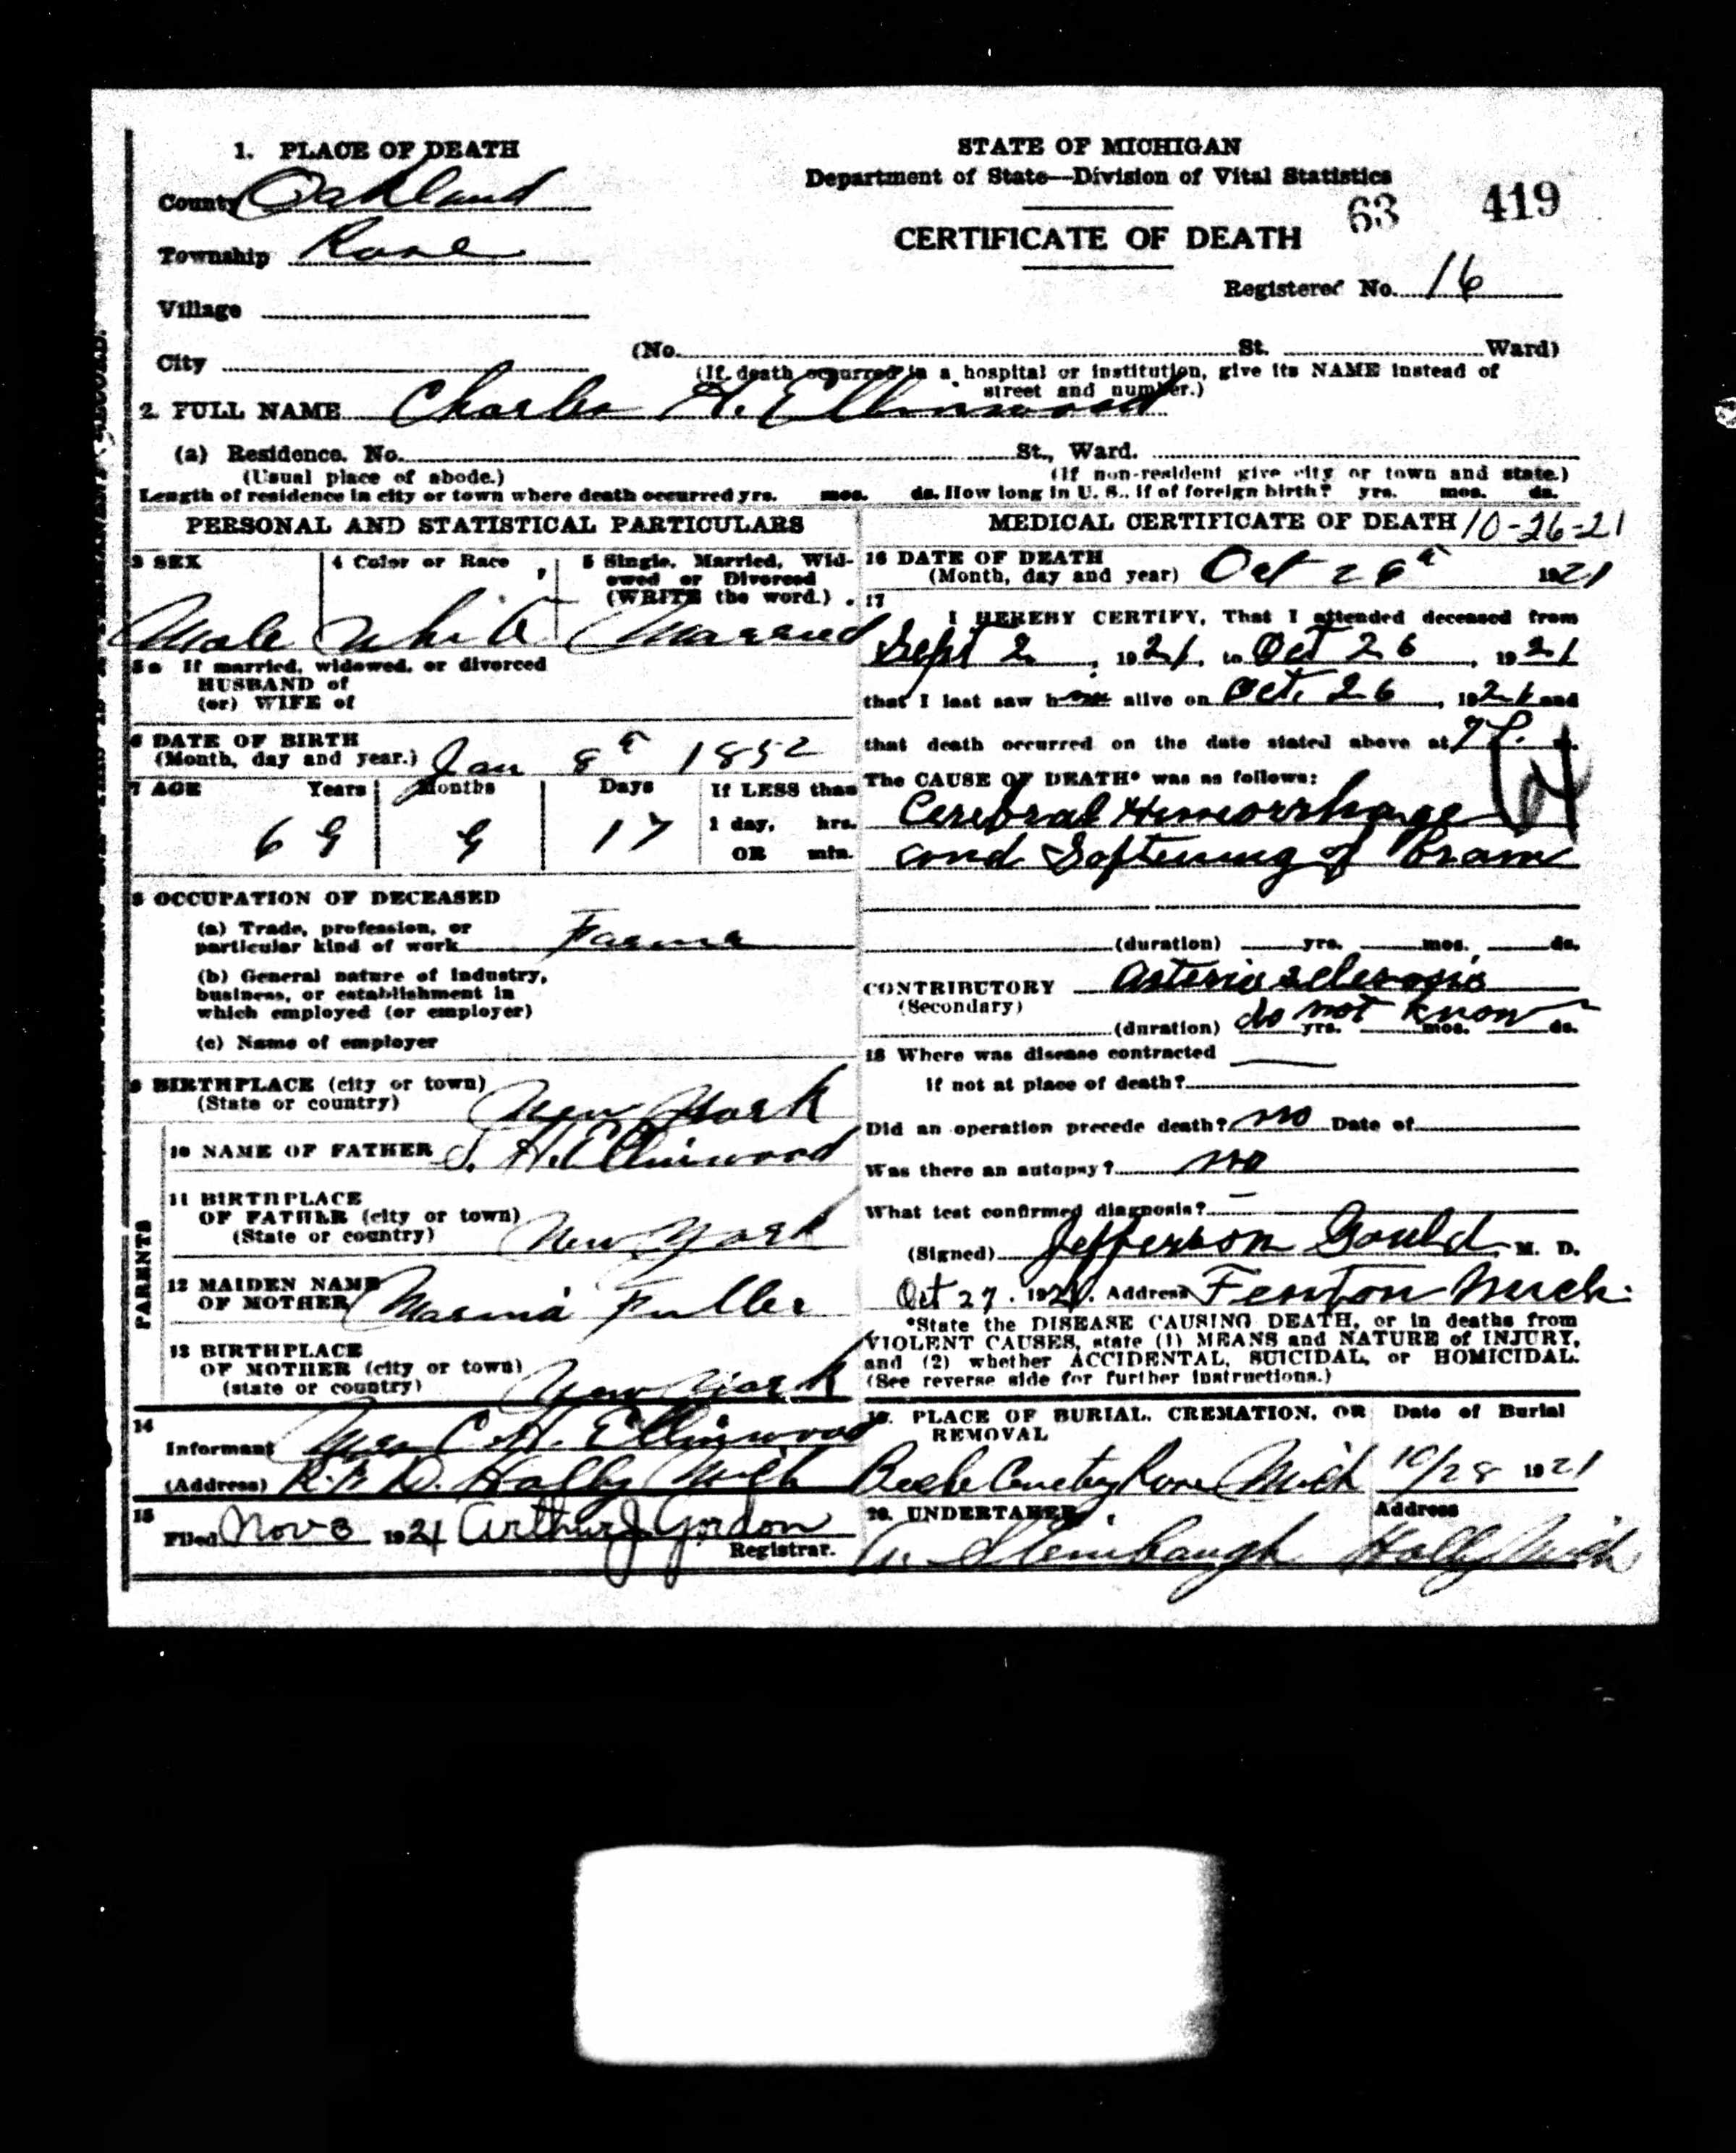 1. PLACE OF DEATH
County Oakland
Township Rose
Village
City
STATE OF MICHIGAN
Department of State—Division of Vital Statistics
63 419
CERTIFICATE OF DEATH
Registered No. 16
(No. St. Ward)
(If death occurred in a hospital or institution, give its NAME instead of
street and number.)
2. FULL NAME Charles H. Ellinwood
(a) Residence. No. St., Ward.
(Usual place of abode.) (If non-resident give city or town and state.)
Length of residence in city or town where death occurred yrs. mos. ds. How long in U. S., if of foreign birth? yrs. mos. ds.
PERSONAL AND STATISTICAL PARTICULARS
3 SEX 4 Color or Race 5 Single, Married, Wid-
owed or Divorced
(WRITE the word.)
Male White Married
5a If married, widowed, or divorced
HUSBAND of
(or) WIFE of
6 DATE OF BIRTH
(Month, day and year.) Jan 8 1852
7 AGE Years Months Days If LESS than
69 9 17 1 day, hrs.
OR min.
8 OCCUPATION OF DECEASED
(a) Trade, profession, or
particular kind of work
(b) General nature of industry,
business, or establishment in
which employed (or employer)
(c) Name of employer
9 BIRTHPLACE (city or town)
(State or country) New York
10 NAME OF FATHER S. H. Ellinwood
PARENTS
11 BIRTHPLACE
OF FATHER (city or town)
(State or country) New York
12 MAIDEN NAME
OF MOTHER Fuller
13 BIRTHPLACE
OF MOTHER (city or town)
(state or country) New York
14
Informant Mrs C. H. Ellinwood
(Address) R.F.D. Holly Mich
15
Filed Nov 3 1921 Arthur J Gordon
Registrar.
MEDICAL CERTIFICATE OF DEATH 10-26-21
16 DATE OF DEATH
(Month, day and year) Oct 26 1921
17
I HEREBY CERTIFY, That I attended deceased from
Sept 2, 1921, to Oct 26, 1921
that I last saw h alive on Oct. 26, 1921 and
that death occurred on the date stated above at m.
The CAUSE OF DEATH* was as follows:
Cerebral Hemorrhage
and Softening of Brain
(duration) yrs. mos. ds.
CONTRIBUTORY Arterio sclerosis
(Secondary)
(duration) do not know yrs. mos. ds.
18 Where was disease contracted
if not at place of death?
Did an operation precede death? no Date of
Was there an autopsy? no
What test confirmed diagnosis?
(Signed) Jefferson Gould M. D.
Oct 27, 1921. Address Fenton Mich.
*State the DISEASE CAUSING DEATH, or in deaths from
VIOLENT CAUSES, state (1) MEANS and NATURE of INJURY,
and (2) whether ACCIDENTAL, SUICIDAL, or HOMICIDAL.
(See reverse side for further instructions.)
19. PLACE OF BURIAL, CREMATION, OR REMOVAL Date of Burial
Beebe Cemetery Rose Mich 10/28 1921
20. UNDERTAKER Address
Steinbaugh Holly Mich